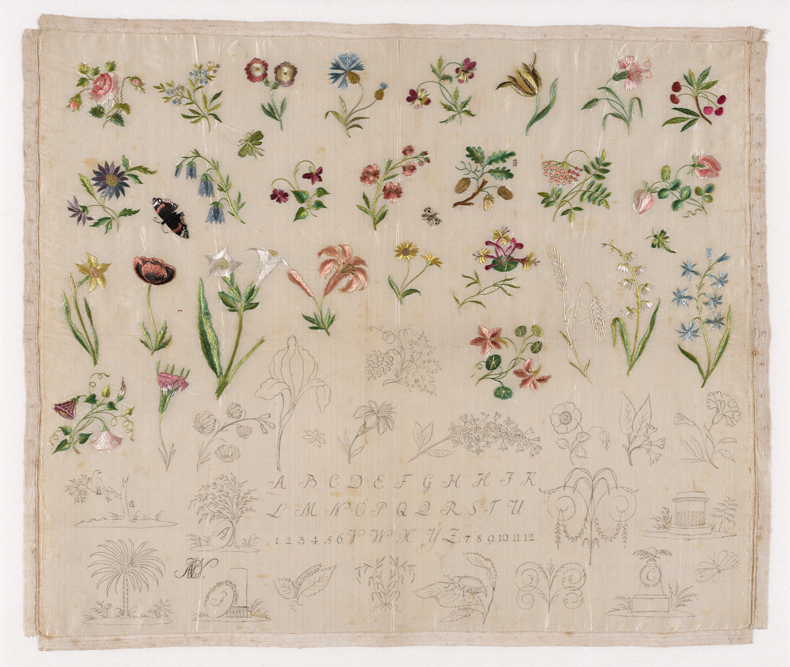 A B C D E F G H H I K
L M N O P Q Q R S T U
1 2 3 4 5 6 V W X Y Z 7 8 9 10 11 12